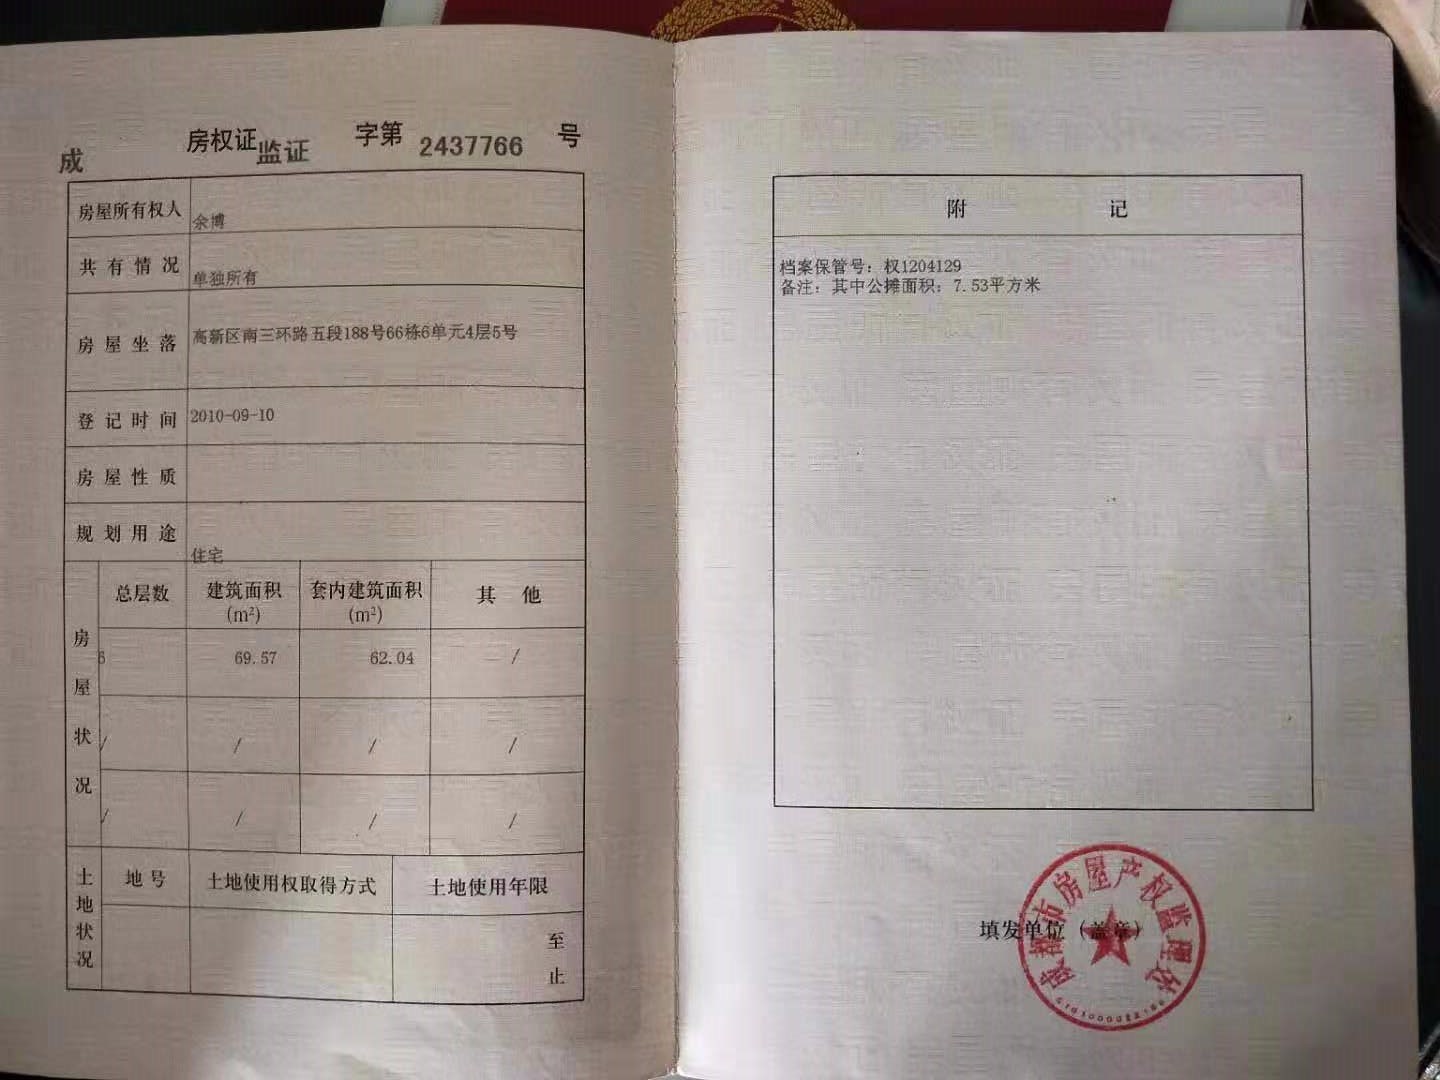 成 房权证 监证 字第 2437766 号
房屋所有权人 余博
共有情况 单独所有
房屋坐落 高新区南三环路五段188号66栋6单元4层5号
登记时间 2010-09-10
房屋性质
规划用途 住宅
房屋状况
总层数 建筑面积(m²) 套内建筑面积(m²) 其他
6 69.57 62.04 /
/ / / /
/ / / /
土地状况
地号 土地使用权取得方式 土地使用年限
至
止
附 记
档案保管号：权1204129
备注：其中公摊面积：7.53平方米
填发单位（盖章）
成都市房屋产权监理处